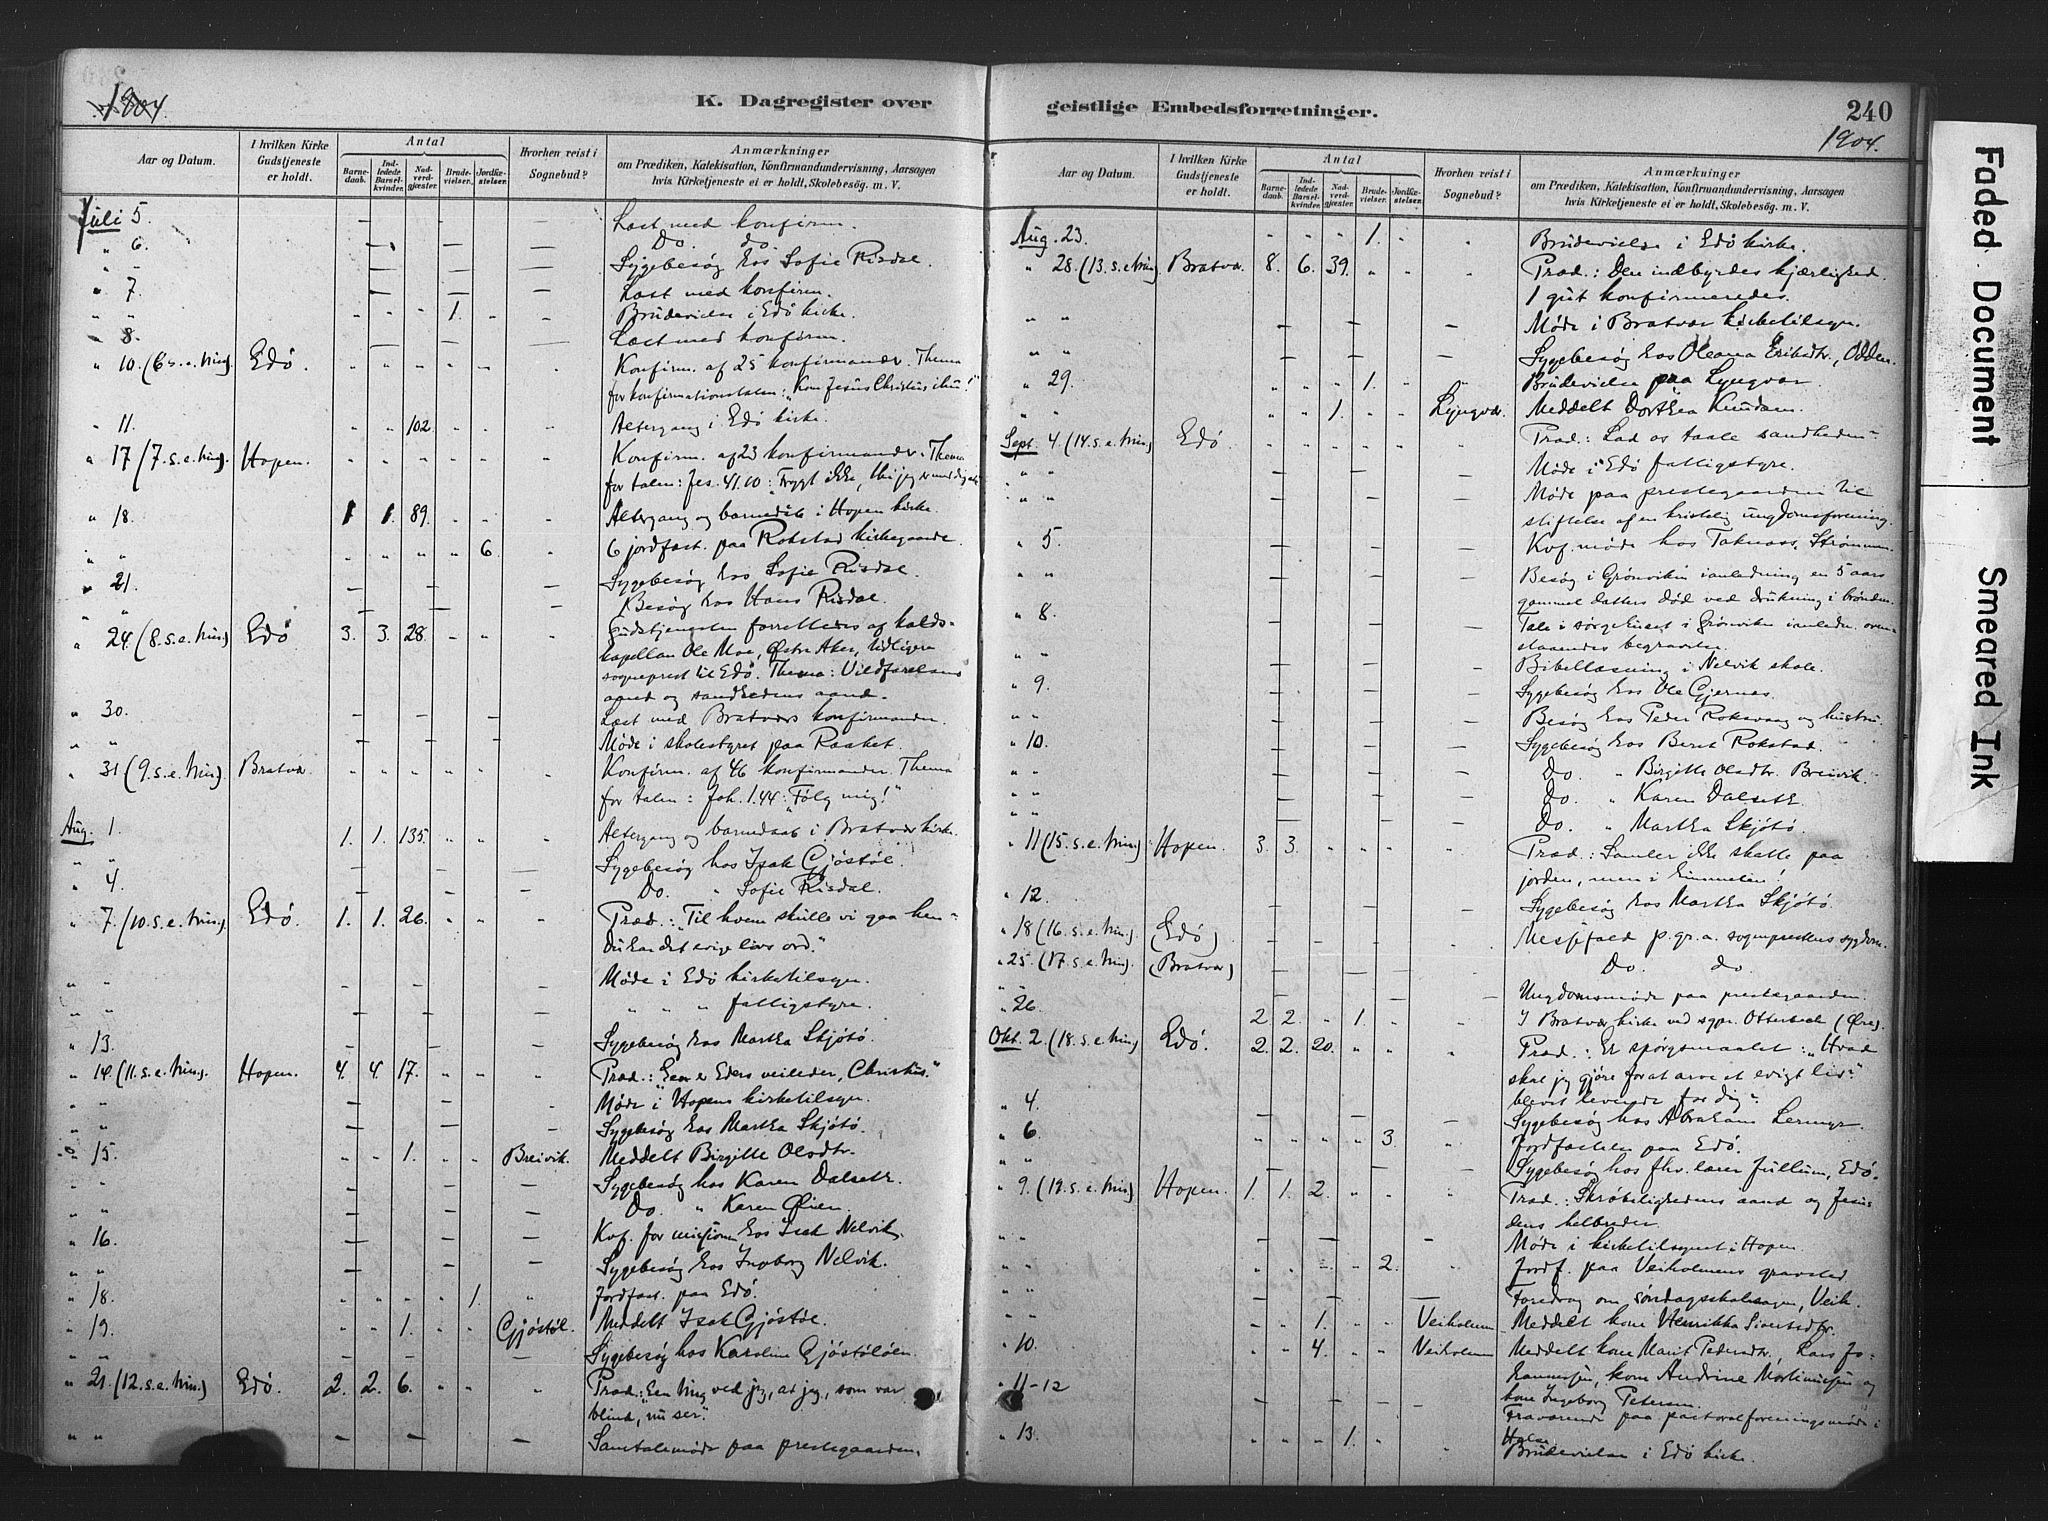 1904.
K. Dagregister over
Aar og Datum. I hvilken Kirke Gudstjeneste er holdt. Antal Barnedaab. Indledede Barselkvinder. Nadverdgjæster. Brudevielser. Jordfæstelser. Hvorhen reist i Sognebud? Anmærkninger om Prædiken, Katekisation, Konfirmandundervisning, Aarsagen hvis Kirketjeneste ei er holdt, Skolebesøg. m. V.
Juli 5. — — — Læst med konfirm.
" 6. — — — Do. do.
— — — Sygebesøg hos Sofie Risdal.
" 7. — — — Læst med konfirm.
" " " " " 1. " — Brudevielse i Edö kirke.
" 8. — — — Læst med konfirm.
" 10. (6 s.e. trin). Edö. " " " " " " Konfirm. af 25 konfirmander. Thema
for konfirmationstalen: "Kom Jesus Christus ihu!"
" 11. " " 102. " " " Altergang i Edö kirke.
" 17 (7. s.e. trin). Hopen. " " " " " " Konfirm. af 23 konfirmander. Thema
for talen: Jes. 41.10: "Frygt ikke, thi jeg er med dig"
" 18. 1 1. 89. " " " Altergang og barnedåb i Hopen kirke.
" " " " " " 6. " 6 jordfæst. paa Rokstad kirkegaard.
" 21. — — — Sygebesøg hos Sofie Risdal.
" " — — — Besøg hos Hans Risdal.
" 24. (8. s.e. trin) Edö 3. 3. 28. " " " Gudstjenesten forrettedes af kalds-
kapellan Ole Moe, Østre Aker, tidligere
sogneprest til Edö. Thema: Vildfarelsens
aand og sandhedens aand.
" 30. — — — Læst med Bratvær konfirmander.
" " — — — Møde i skolestyret paa Raaket.
" 31 (9. s.e. trin). Bratvær " " " " " " Konfirm. af 46 konfirmander. Thema
for talen: Joh. 1.44: "Følg mig!"
Aug. 1. 1. 1. 135. " " " Altergang og barnedaab i Bratvær kirke.
" " — — — Sygebesøg hos Isak Gjöstöl.
" 4. — — — Do. " Sofie Risdal.
" 7. (10. s.e. trin). Edö. 1. 1. 26. " " " Præd.: "Til hvem skulle vi gaa hen -
Du har det evige livs ord."
" " — — — Møde i Edö kirketilsyn.
" " — — — " " " fattigstyre.
" 13. — — — Sygebesøg hos Martha Skjötö.
" 14. (11. s.e. trin). Hopen. 4. 4. 17. " " " Præd.: "Een er Eders veileder, Christus."
" " — — " Møde i Hopens kirketilsyn.
" " — — " Sygebesøg hos Martha Skjötö.
" 15. " " 1. " " Breivik. Meddelt Birgitte Olsdtr.
" " — — — Sygebesøg hos Karen Dalseth.
" " — — — Do. " Karen Øien.
" 16. — — — Kvf. for missionen hos Isak Nelvik.
" " — — — Sygebesøg hos Ingborg Nelvik.
" 18. " " " " 1. " Jordfæst. paa Edö.
" 19. " " 1. " " Gjöstöl. Meddelt Isak Gjöstöl.
" " — — — Sygebesøg hos Karoline Gjöstölöen.
" 21. (12. s.e. trin) Edö. 2. 2. 6. " " " Præd.: "Een ting ved jeg, at jeg, som var
blind, nu ser."
" " — — — Samtalemøde paa prestegaarden.
geistlige Embedsforretninger. 240
1904.
Aar og Datum. I hvilken Kirke Gudstjeneste er holdt. Antal Barnedaab. Indledede Barselkvinder. Nadverdgjæster. Brudevielser. Jordfæstelser. Hvorhen reist i Sognebud? Anmærkninger om Prædiken, Katekisation, Konfirmandundervisning, Aarsagen hvis Kirketjeneste ei er holdt, Skolebesøg. m. V.
Aug. 23. " " " 1. " " Brudevielse i Edö kirke.
" 28. (13. s.e. trin) Bratvær. 8. 6. 39. " " " Præd.: Den indbyrdes kjærlighed.
1 gut konfirmeredes.
" " — — — Møde i Bratvær kirketilsyn.
" " — — — Sygebesøg hos Oleana Eriksdtr., Odden.
" 29. " " " 1. " " Brudevielse paa Lyngvær
" " " " 1. " " Lyngvær. Meddelt Dorthea Knudsen.
Sept. 4. (14. s.e. trin) Edö " " " " " " Præd.: Lad os tale sandheden.
" " — — — Møde i Edö fattigstyre.
" " — — — Møde paa prestegaarden til
stiftelse af en kristelig ungdomsforening.
" 5. — — — Kvf. møde hos Strömmen.
" " — — — Besøg i Grönvikin i anledning en 5 aars
gammel datters död ved drukning i brönden.
" 8. — — — Tale i sørgehuset i Grönviken i anledn. oven-
staaendes begravelse.
" " — — — Bibellæsning i Nelvik skole.
" 9. — — — Sygebesøg hos Ole Gjernes.
" " — — — Besøg hos Peder Roksvaag og hustru.
" 10. — — — Sygebesøg hos Berit Rokstad.
" " — — — Do. " Birgitte Olsdtr. Breivik.
" " — — — Do. " Karen Dalseth.
" " — — — Do. " Martha Skjötö.
" 11 (15. s.e. trin) Hopen. 3. 3. " " " " Præd.: Samler ikke skatte paa
jorden, men i himmelen!
" 12. — — — Sygebesøg hos Martha Skjötö.
" 18 (16. s.e. trin). (Edö) — — — Messefald p. gr. a. sogneprestens sygdom.
" 25. (17. s.e. trin). (Bratvær) — — — Do. do.
" " — — — Ungdomsmøde paa prestegaarden.
" 26. 2 2. " 1. " " I Bratvær kirke ved sgpr. Otterbech (Øre).
Okt. 2. (18. s.e. trin) Edö. 2. 2. 20. " " " Præd.: Er spørgsmaalet: "Hvad
skal jeg gjøre for at arve et evigt liv?"
blevet levende for dig?
" 4. — — — Sygebesøg hos Abraham
" 6. " " " " 3. " Jordfæstelse paa Edö.
" " — — — Sygebesøg hos fhv. lærer Jullum, Edö.
" 9. (19. s.e. trin) Hopen. 1. 1. 2. " " " Præd.: Skröbelighedens aand og Jesus
dens helbreder.
" " — — — Møde i kirketilsynet i Hopen.
" " " " " " 2. " Jordf. paa Veiholmens gravsted.
" " — — — Foredrag om söndagsskolesagen, Veih.
" " " " 1. " " Veiholmen Meddelt kone Henrikka Sivertsdtr.
" 10. " " 4. " " Veiholmen Meddelt kone Marit Pedersdtr., Lars Jo-
hannesen, kone Andrine Mortensen og
kone Ingeborg Petersen.
" 11-12 — — — Fraværende paa pastoralforeningsmøde i
Halse
" 13. " " " 1. " " Brudevielse i Edö kirke.
Faded Document
Smeared Ink